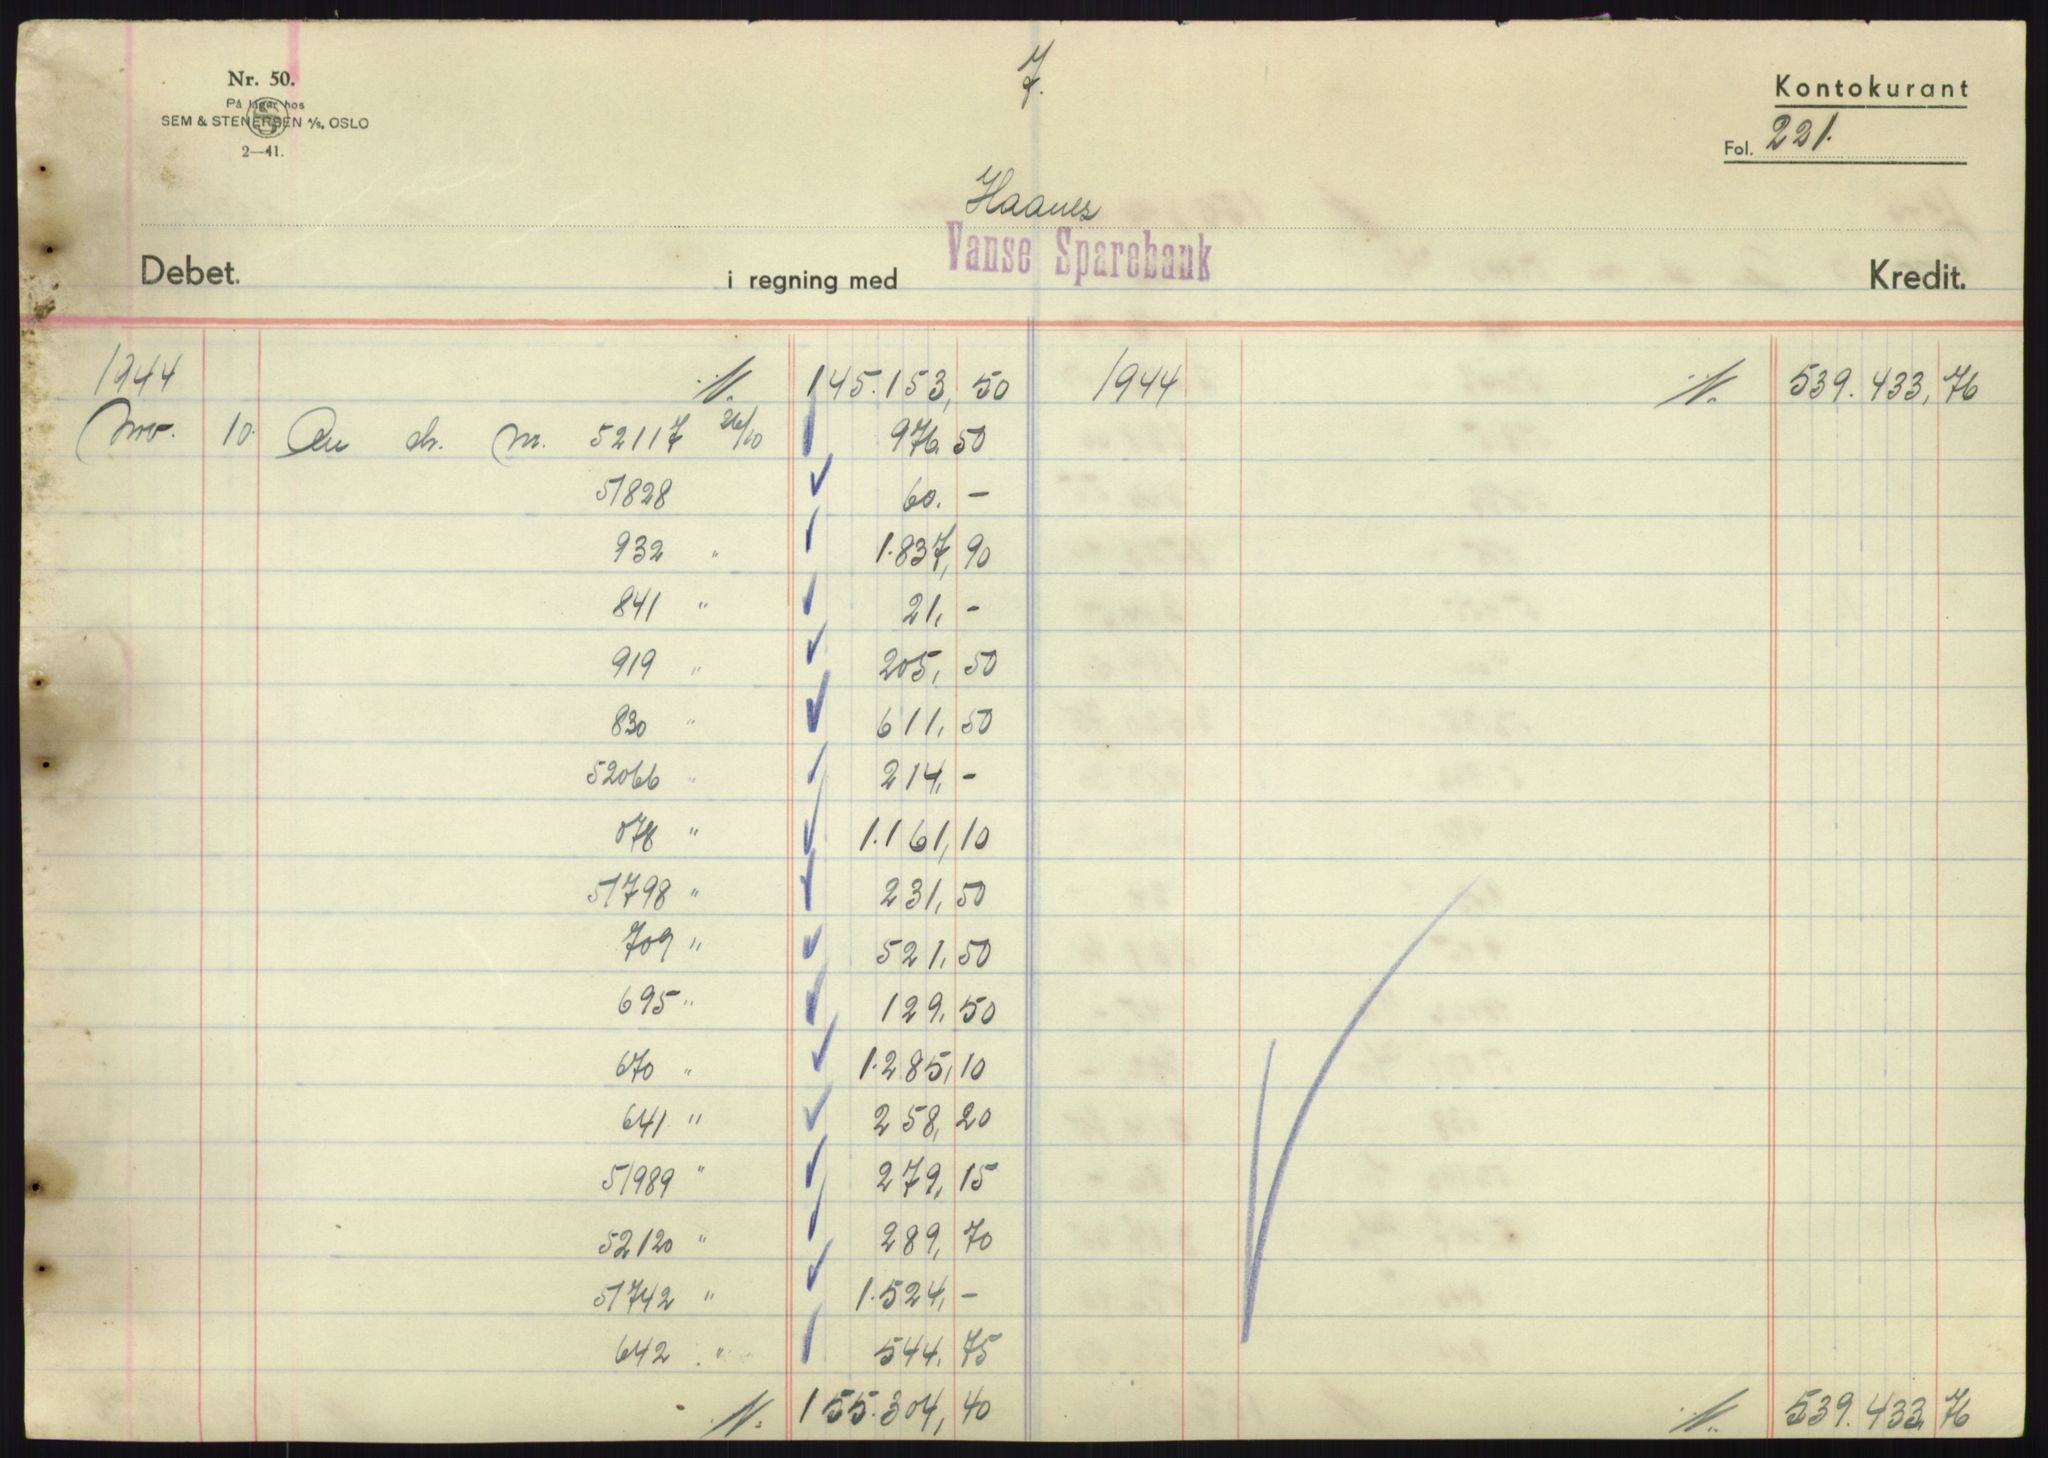 7.
Nr. 50.
På lager hos
SEM & STENERSEN A/S, OSLO
2—41.
Kontokurant
Fol. 221.
Haanes
Debet. i regning med Vanse Sparebank Kredit.
1944 145.153,50 1944 539.433,76
Nov. 10. An ch. nr. 52117 26/10 976.50
51828 60.-
932 " 1.837,90
841 " 21,-
919 " 205,50
830 " 611,50
52066 " 214,-
078 " 1.161,10
51798 " 231,50
709 " 521,50
695 " 129,50
670 " 1.285,10
641 " 258,20
51989 " 279,15
52120 " 289,70
51742 " 1.524,-
642 " 544,75
155.304,40 539.433,76